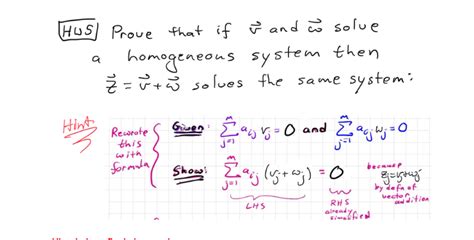 HW5 Prove that if v⃗ and w⃗ solve
a homogeneous system then
z⃗ = v⃗ + w⃗ solves the same system:
Hint
Rewrite this with formula
Given: ∑_{j=1}^{m} a_{ij} v_j = 0 and ∑_{j=1}^{m} a_{ij} w_j = 0
Show: ∑_{j=1}^{m} a_{ij} (v_j + w_j) = 0
because z_j = v_j + w_j by defn of vector addition
LHS
RHS already simplified